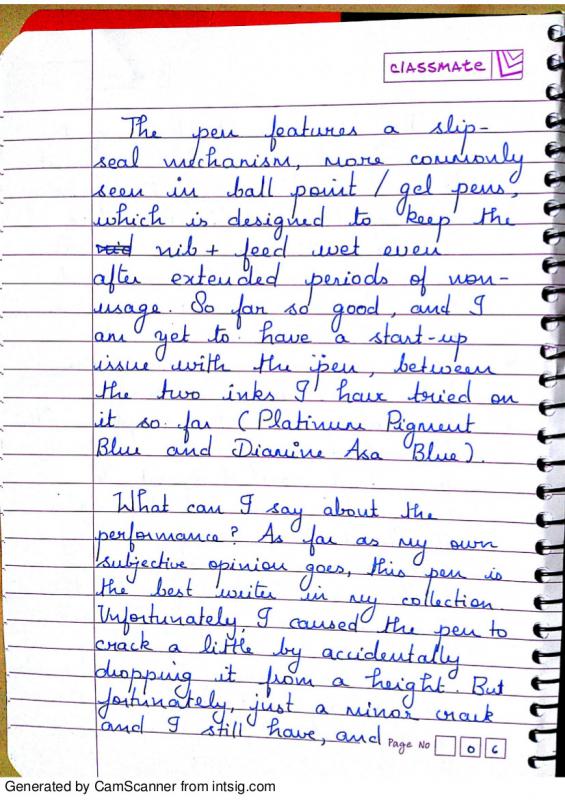 classmate
The pen features a slip-
seal mechanism, more commonly
seen in ball point / gel pens,
which is designed to keep the
nib + feed wet even
after extended periods of non-
usage. So far so good, and I
am yet to have a start-up
issue with the pen, between
the two inks I have tried on
it so far (Platinum Pigment
Blue and Diamine Asa Blue).
What can I say about the
performance? As far as my own
subjective opinion goes, this pen is
the best writer in my collection.
Unfortunately, I caused the pen to
crack a little by accidentally
dropping it from a height. But
fortunately, just a minor crack
and I still have, and
Page No 0 6
Generated by CamScanner from intsig.com